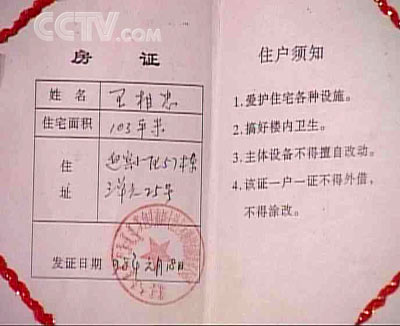 CCTV.com
房 证
姓 名 王相忠
住宅面积 103平米
住 小区57栋
址 三单元25号
发证日期 95年2月18日
住户须知
1.爱护住宅各种设施。
2.搞好楼内卫生。
3.主体设备不得擅自改动。
4.该证一户一证不得外借，
不得涂改。